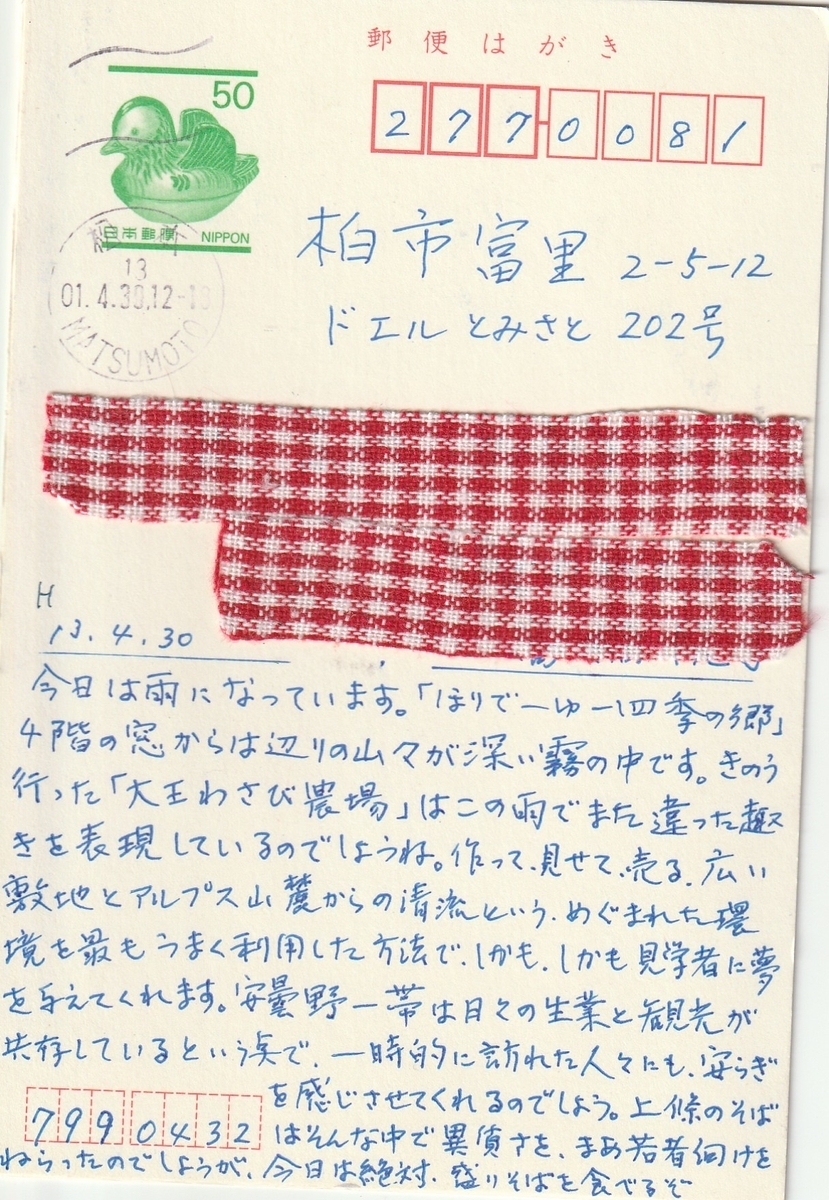 郵便はがき
50
日本郵便 NIPPON
277-0081
13
01.4.30.12-18
MATSUMOTO
柏市富里 2-5-12
ドエルとみさと 202号
H
13.4.30
今日は雨になっています。「ほりでーゆー四季の郷」
4階の窓からは辺りの山々が深い霧の中です。きのう
行った「大王わさび農場」はこの雨でまた違った趣
きを表現しているのでしょうね。作って、見せて、売る、広い
敷地とアルプス山麓からの清流という、めぐまれた環
境を最もうまく利用した方法で、しかも、しかも見学者に夢
を与えてくれます。安曇野一帯は日々の生業と観光が
共存しているという点で、一時的に訪れた人々にも、安らぎ
を感じさせてくれるのでしょう。上條のそば
はそんな中で異質さを、まあ若者向けを
ねらったのでしょうが、今日は絶対、盛りそばを食べるぞ
7990432